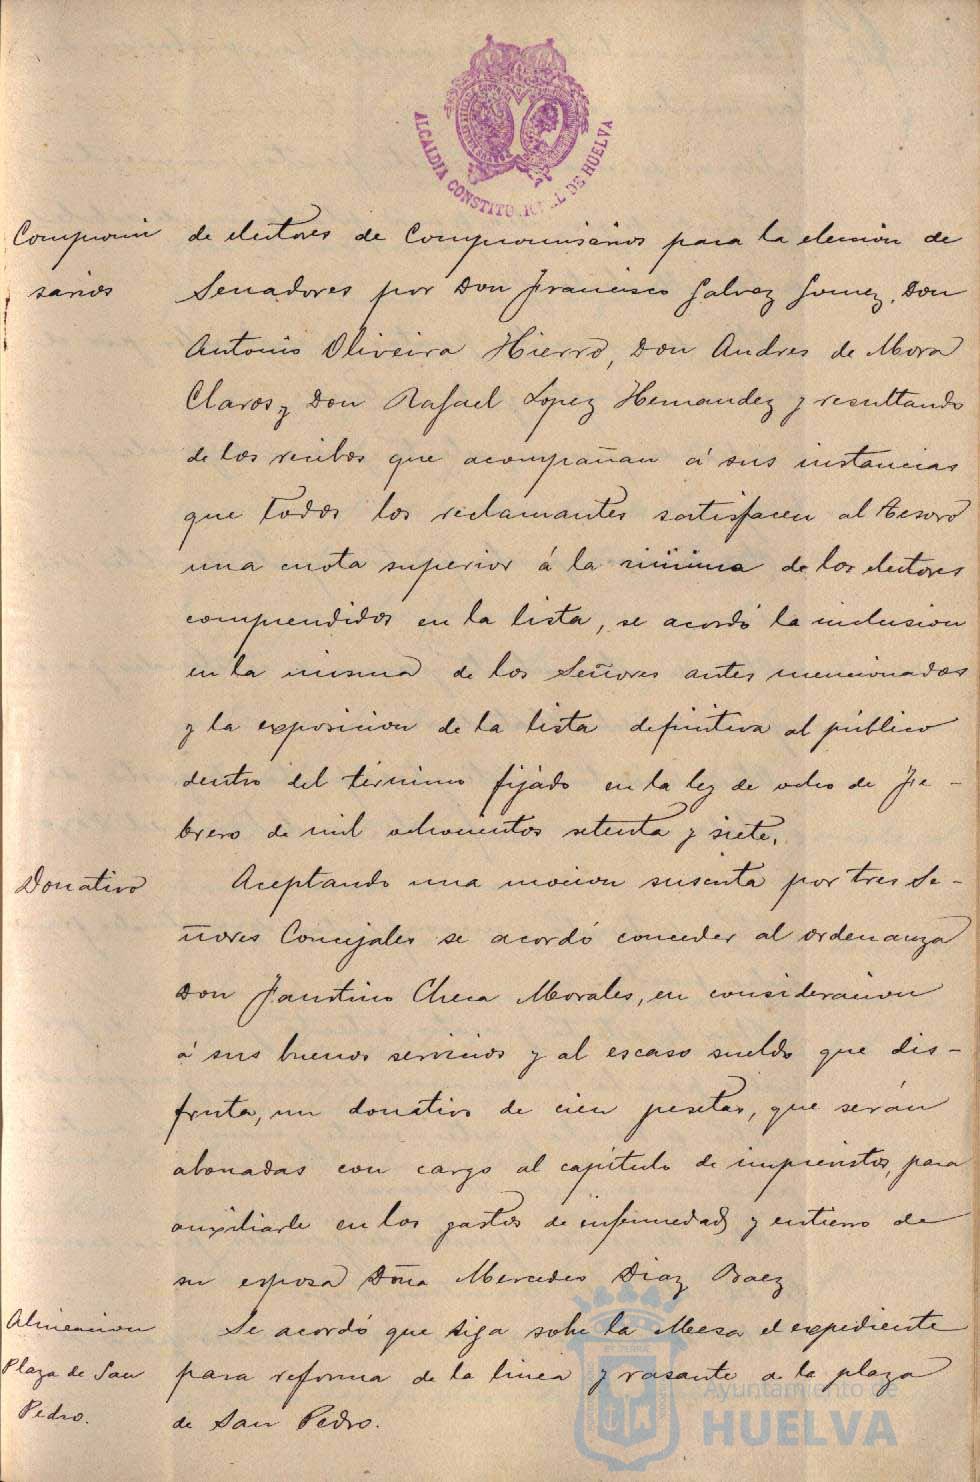 ALCALDIA CONSTITUCIONAL DE HUELVA
Compromi
sarios
de electores de Compromisarios para la elección de
Senadores por Don Francisco Galvez Gomez, Don
Antonio Oliveira Hierro, Don Andres de Mora
Claros y Don Rafael Lopez Hernandez y resultando
de los recibos que acompañan á sus instancias
que todos los reclamantes satisfacen al Tesoro
una cuota superior á la mínima de los electores
comprendidos en la lista, se acordó la inclusion
en la misma de los Señores antes mencionados
y la exposicion de la lista definitiva al público
dentro del término fijado en la ley de ocho de Fe-
brero de mil ochocientos setenta y siete.
Donativo
Aceptando una mocion suscrita por tres Se-
ñores Concejales se acordó conceder al ordenanza
Don Faustino Checa Morales, en consideracion
á sus buenos servicios y al escaso sueldo que dis-
fruta, un donativo de cien pesetas, que serán
abonadas con cargo al capítulo de imprevistos, para
auxiliarle en los gastos de enfermedad y entierro de
su esposa Dña Mercedes Diaz Baez
Alineacion
Plaza de San
Pedro.
Se acordó que siga sobre la Mesa el expediente
para reforma de la linea y rasante de la plaza
de San Pedro.
Ayuntamiento de
HUELVA